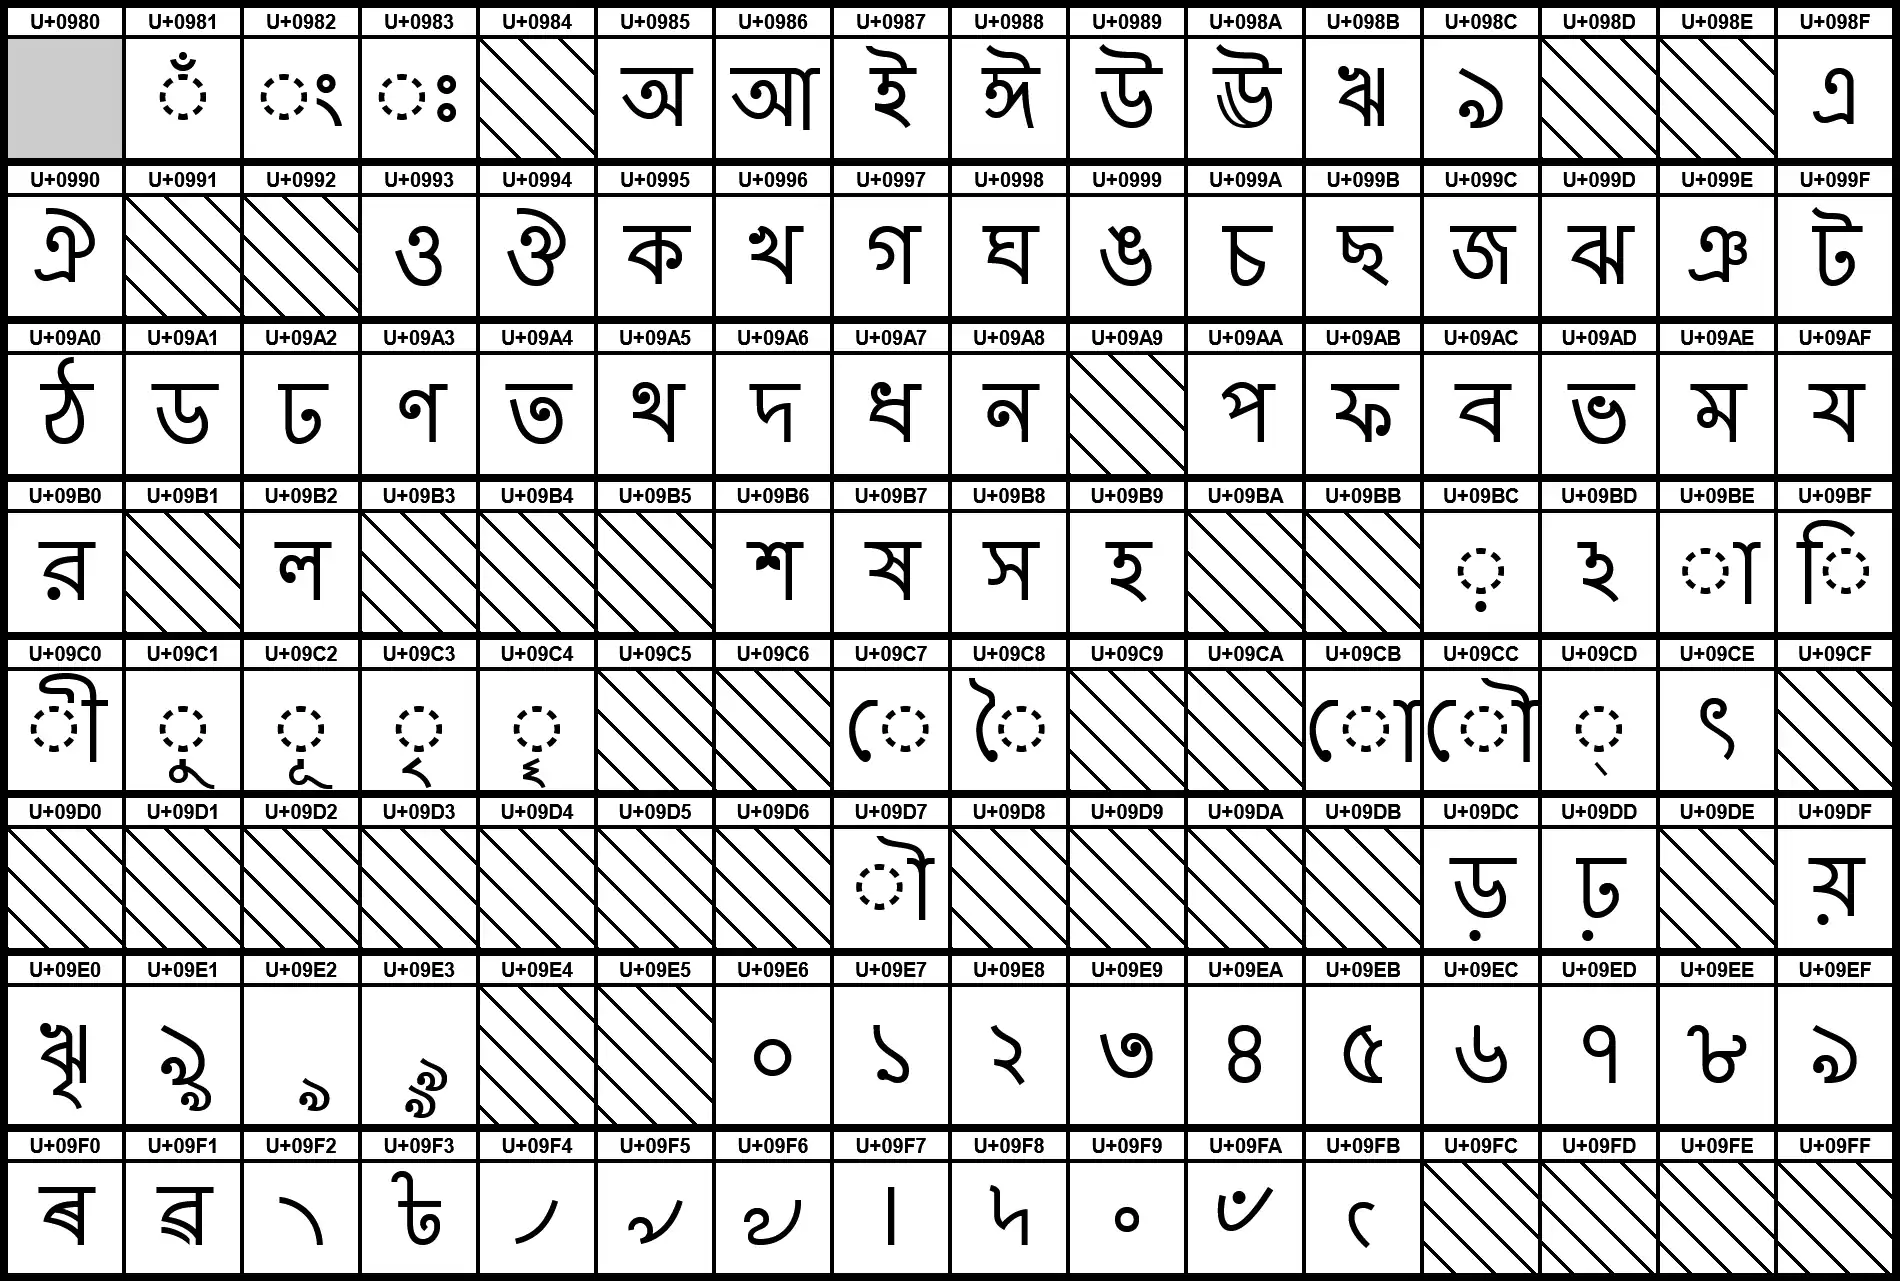 U+0980 U+0981 U+0982 U+0983 U+0984 U+0985 U+0986 U+0987 U+0988 U+0989 U+098A U+098B U+098C U+098D U+098E U+098F
ঁ ং ঃ অ আ ই ঈ উ ঊ ঋ ঌ এ
U+0990 U+0991 U+0992 U+0993 U+0994 U+0995 U+0996 U+0997 U+0998 U+0999 U+099A U+099B U+099C U+099D U+099E U+099F
ঐ ও ঔ ক খ গ ঘ ঙ চ ছ জ ঝ ঞ ট
U+09A0 U+09A1 U+09A2 U+09A3 U+09A4 U+09A5 U+09A6 U+09A7 U+09A8 U+09A9 U+09AA U+09AB U+09AC U+09AD U+09AE U+09AF
ঠ ড ঢ ণ ত থ দ ধ ন প ফ ব ভ ম য
U+09B0 U+09B1 U+09B2 U+09B3 U+09B4 U+09B5 U+09B6 U+09B7 U+09B8 U+09B9 U+09BA U+09BB U+09BC U+09BD U+09BE U+09BF
র ল শ ষ স হ ় ঽ া ি
U+09C0 U+09C1 U+09C2 U+09C3 U+09C4 U+09C5 U+09C6 U+09C7 U+09C8 U+09C9 U+09CA U+09CB U+09CC U+09CD U+09CE U+09CF
ী ু ূ ৃ ৄ ে ৈ ো ৌ ্ ৎ
U+09D0 U+09D1 U+09D2 U+09D3 U+09D4 U+09D5 U+09D6 U+09D7 U+09D8 U+09D9 U+09DA U+09DB U+09DC U+09DD U+09DE U+09DF
ৗ ড় ঢ় য়
U+09E0 U+09E1 U+09E2 U+09E3 U+09E4 U+09E5 U+09E6 U+09E7 U+09E8 U+09E9 U+09EA U+09EB U+09EC U+09ED U+09EE U+09EF
ৠ ৡ ৢ ৣ ০ ১ ২ ৩ ৪ ৫ ৬ ৭ ৮ ৯
U+09F0 U+09F1 U+09F2 U+09F3 U+09F4 U+09F5 U+09F6 U+09F7 U+09F8 U+09F9 U+09FA U+09FB U+09FC U+09FD U+09FE U+09FF
ৰ ৱ ৲ ৳ ৴ ৵ ৶ ৷ ৸ ৹ ৺ ৻